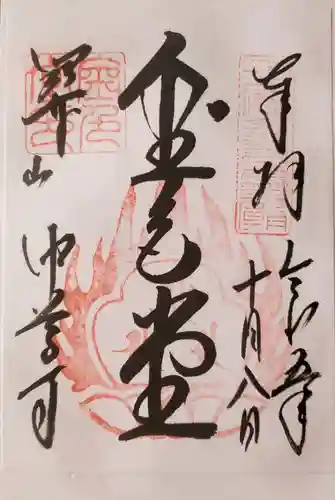 奉拝
令和五年
十月八日
金色堂
關山 中尊寺